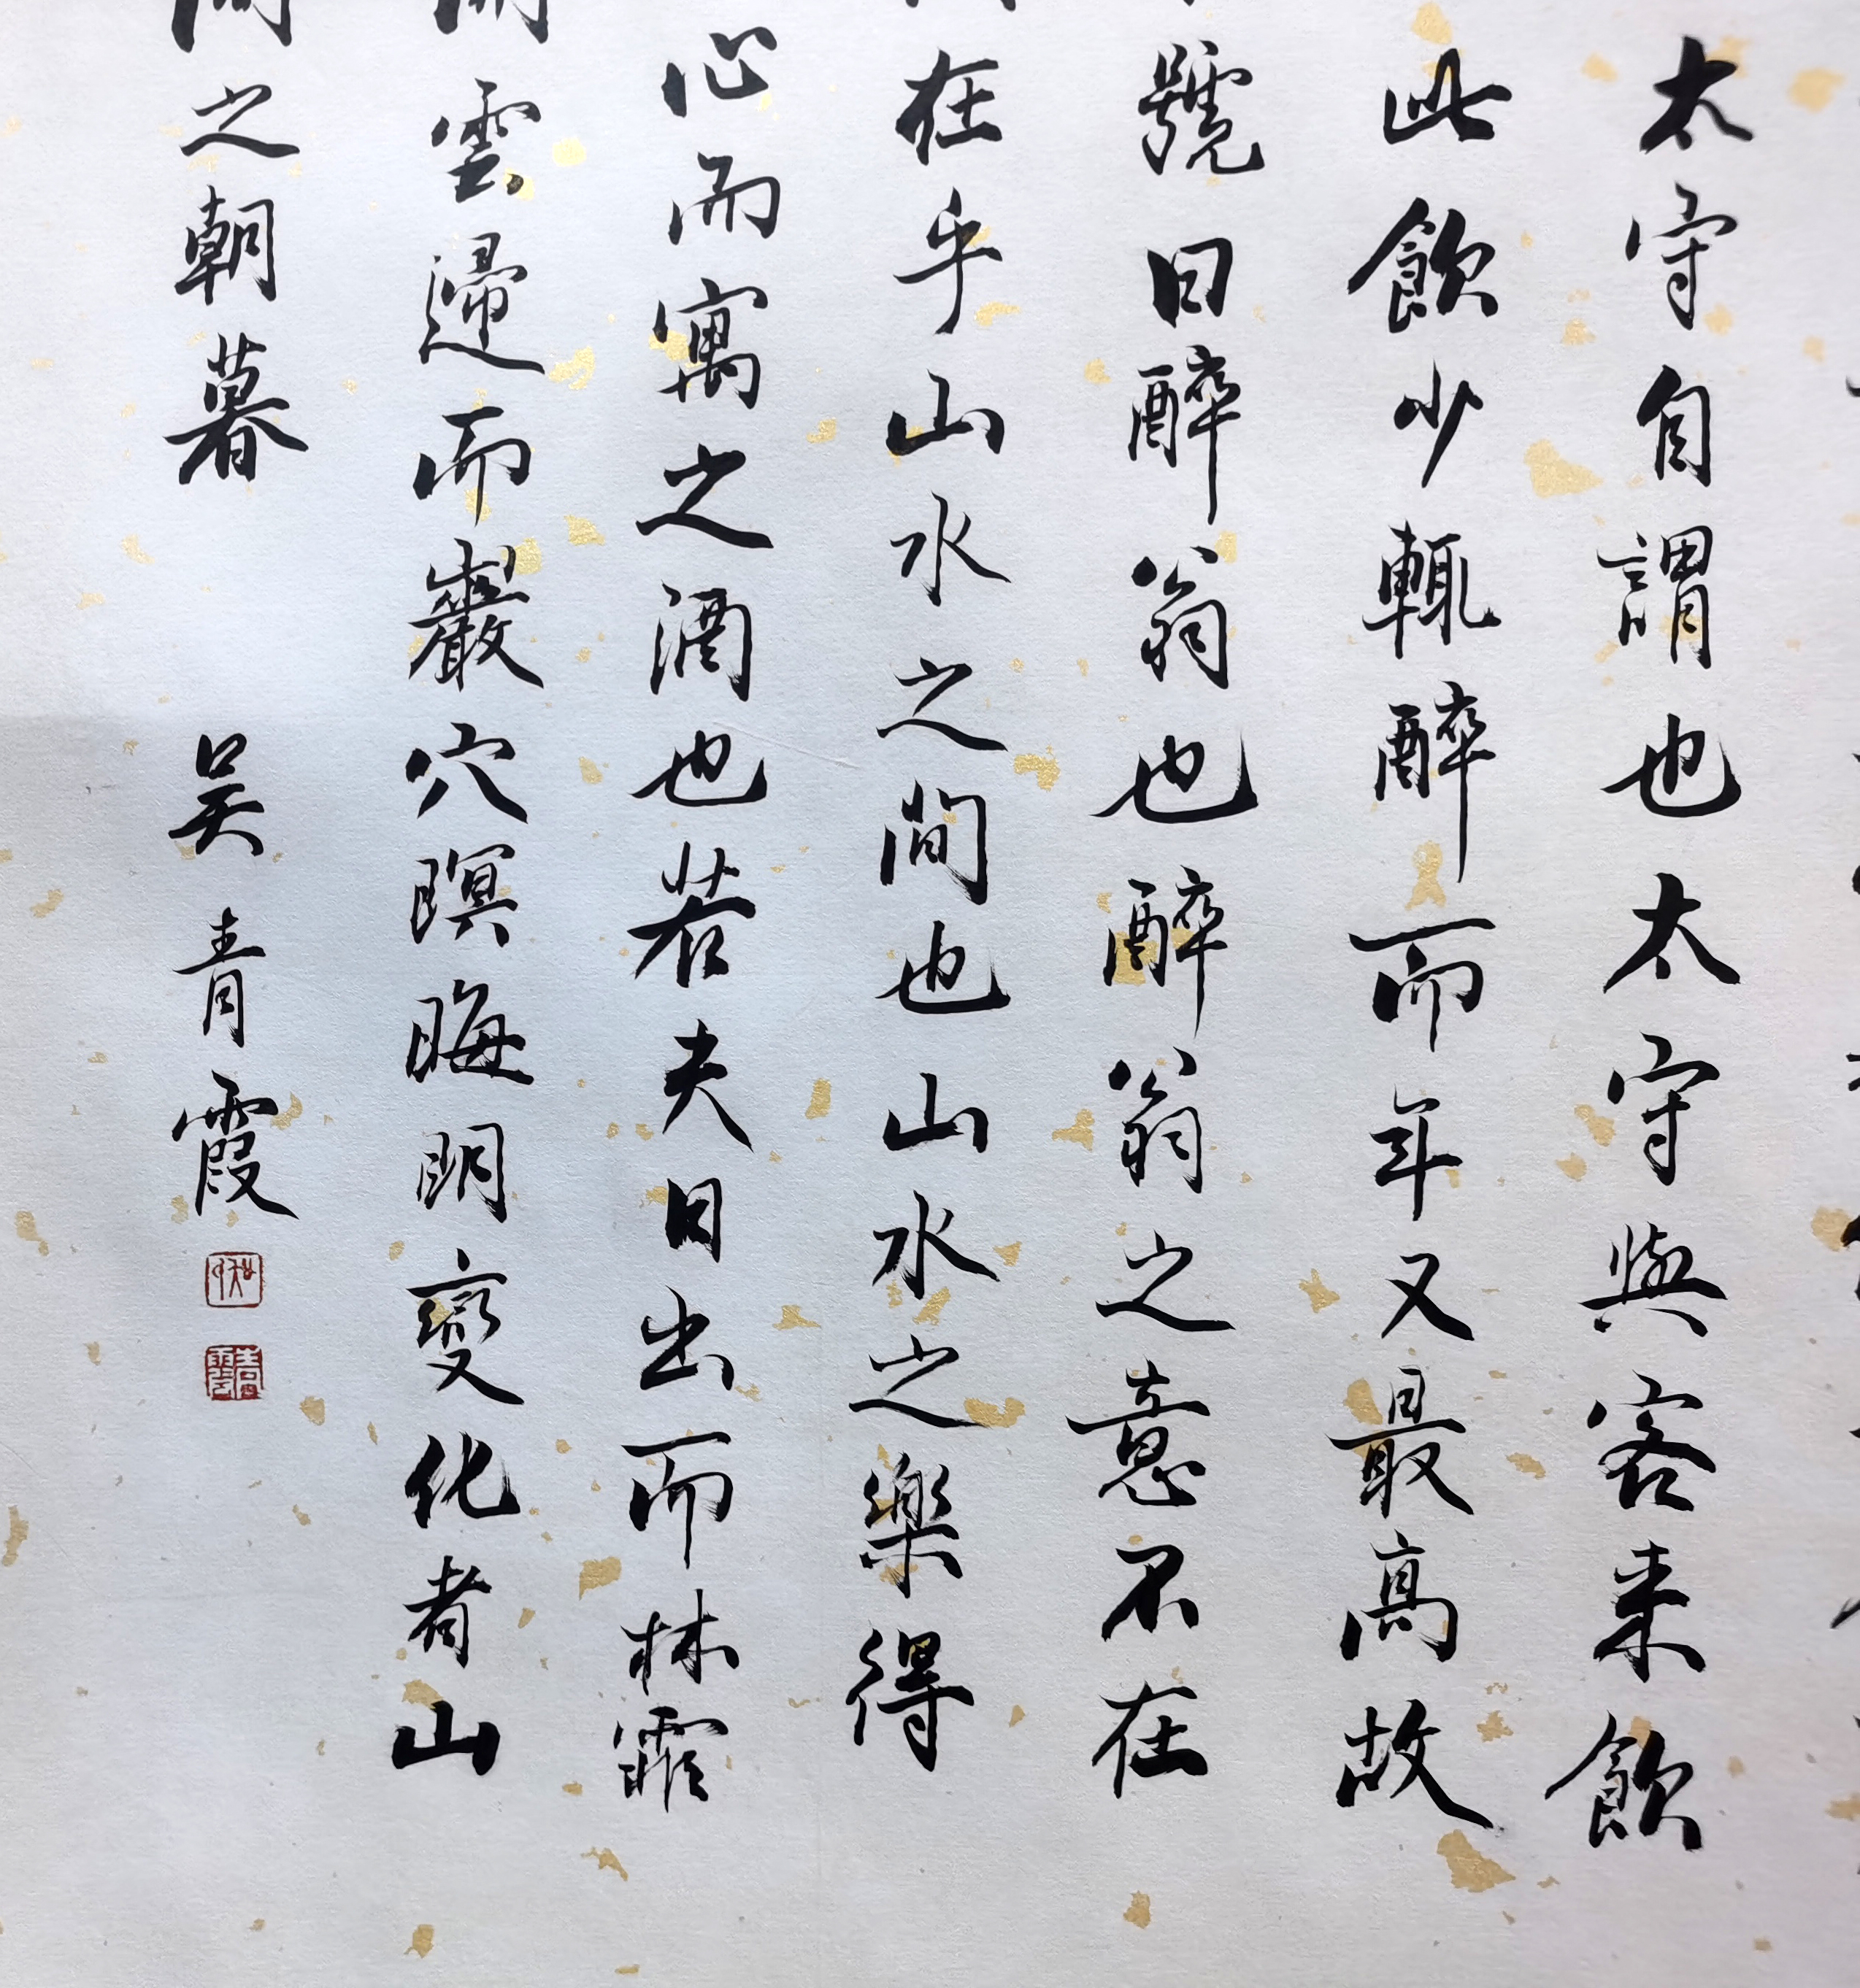 太守自謂也太守與客来飲
此飲少輒醉而年又最高故
號曰醉翁也醉翁之意不在
在乎山水之間也山水之樂得
心而寓之酒也若夫日出而林霏
雲歸而巖穴暝晦明變化者山
間之朝暮
吴青霞